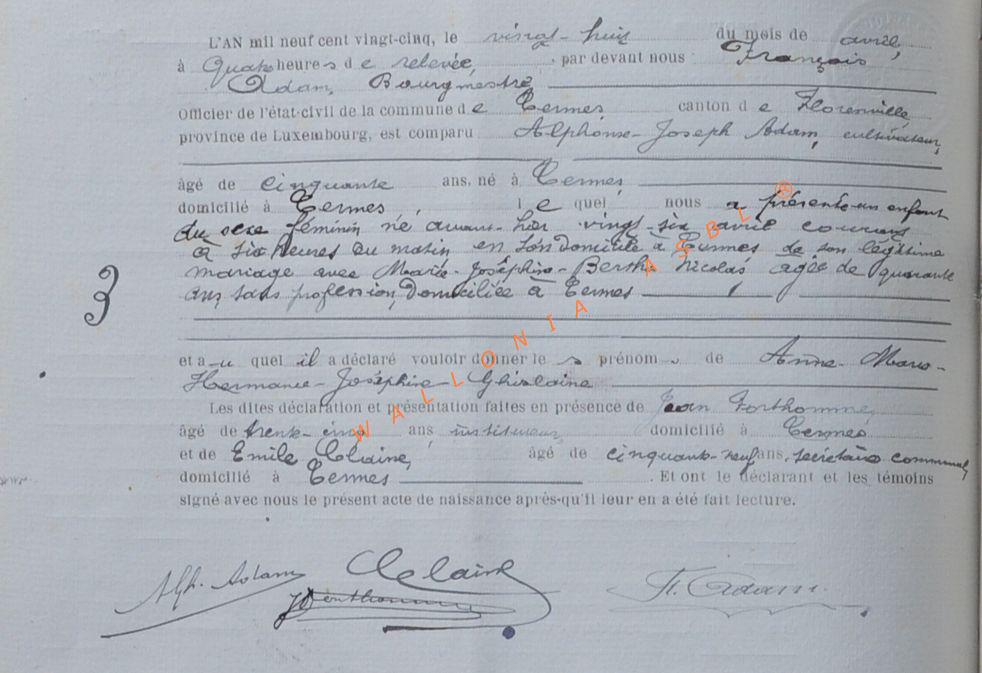 L'AN mil neuf cent vingt-cinq, le vingt-huit du mois de avril,
à Quatre heures de relevée, par devant nous François
Adam, Bourgmestre
Officier de l'état-civil de la commune de Termes, canton de Florenville,
province de Luxembourg, est comparu Alphonse-Joseph Adam, cultivateur,
âgé de cinquante ans, né à Termes,
domicilié à Termes, le quel nous a présenté un enfant
du sexe féminin né avant-hier vingt-six avril courant
à six heures du matin en son domicile à Termes de son légitime
mariage avec Marie-Joséphine-Berthe Nicolas âgée de quarante
ans sans profession, domiciliée à Termes
3
et au quel il a déclaré vouloir donner les prénoms de Anne-Marie-
Hermance-Joséphine-Ghislaine
Les dites déclaration et présentation faites en présence de Jean Forthomme,
âgé de trente-cinq ans, instituteur, domicilié à Termes
et de Emile Clelaine, âgé de cinquante-neuf ans, secrétaire communal,
domicilié à Termes. Et ont le déclarant et les témoins
signé avec nous le présent acte de naissance après-qu'il leur en a été fait lecture.
WALLONIA ASBL ®
Alph. Adam Clelaine
JForthomme F. Adam